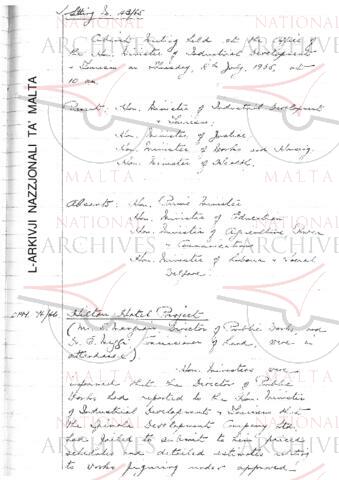 Sitting No. 43/65
Cabinet Meeting held at the office of
the Hon. Minister of Industrial Development
& Tourism on Thursday, 8th July, 1965, at
10 am.
Present: Hon. Minister of Industrial Development
& Tourism;
Hon. Minister of Justice
Hon. Minister of Works and Housing
Hon. Minister of Health.
Absent: Hon. Prime Minister
Hon. Minister of Education
Hon. Minister of Agriculture, Power
& Communications
Hon. Minister of Labour & Social
Welfare.
Hilton Hotel Project
(Mr. S. Mangion, Director of Public Works, and
Commissioner of Land, were in
attendance)
Hon. Ministers were
informed that the Director of Public
Works had reported to the Hon. Minister
of Industrial Development & Tourism that
the Spinola Development Company Ltd.
had failed to submit to him priced
schedules and detailed estimates
to works figuring under approved
L-ARKIVJI NAZZJONALI TA' MALTA
NATIONAL
ARCHIVES
MALTA